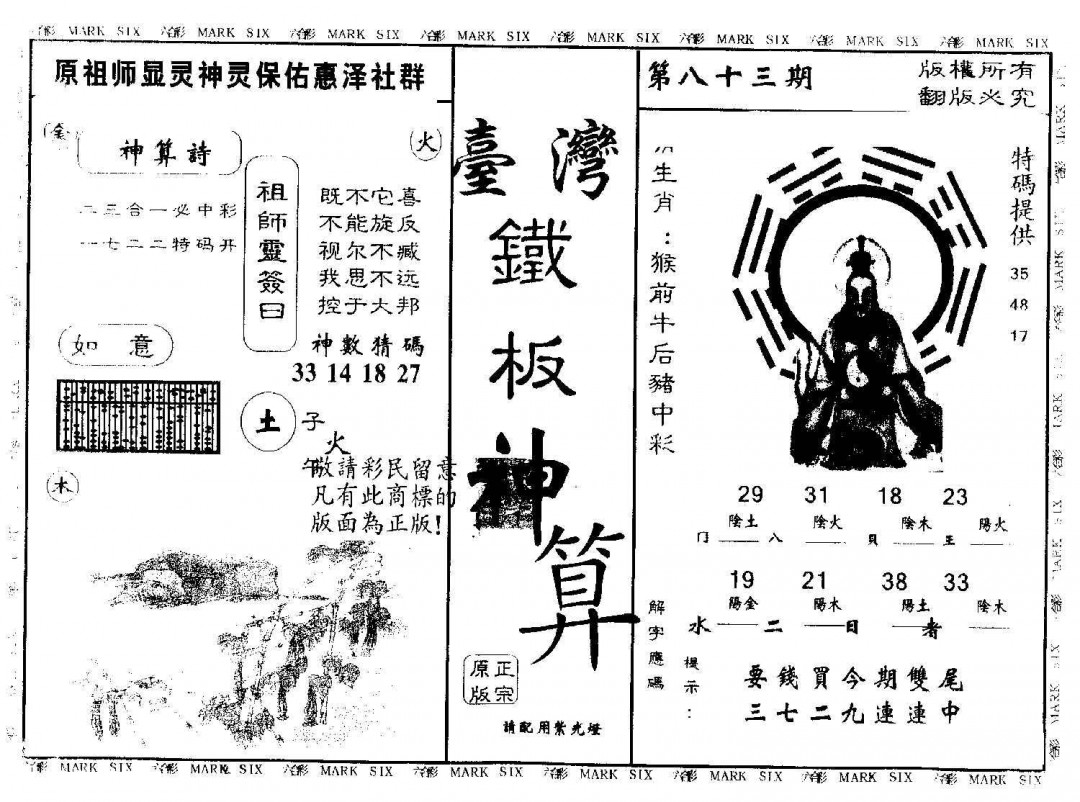 六合彩 MARK SIX 六合彩 MARK SIX 六合彩 MARK SIX 六合彩 MARK SIX 六合彩 MARK SIX 六合彩 MARK SIX 六合彩 MARK SIX 六合彩 MARK SIX
原祖师显灵神灵保佑惠泽社群
金
神算詩
火
二三合一必中彩
一七二二特码开
祖師靈簽曰
既不它喜
不能旋反
视尔不臧
我思不远
控于大邦
如意
神數猜碼
33 14 18 27
土
子
火
午
敬請彩民留意
凡有此商標的
版面為正版!
木
臺灣
鐵
板
神
算
正宗
原版
請配用紫光燈
第八十三期
版權所有
翻版必究
生肖：猴前牛后豬中彩
特碼提供
35
48
17
29 31 18 23
陰土 陰火 陰木 陽火
门 八 貝 王
19 21 38 33
陽金 陽木 陽土 陰木
水 二 日 者
解字應碼
提示：
要錢買今期雙尾
三七二九連連中
六合彩 MARK SIX 六合彩 MARK SIX 六合彩 MARK SIX 六合彩 MARK SIX 六合彩 MARK SIX 六合彩 MARK SIX 六合彩 MARK SIX 六合彩 MARK SIX